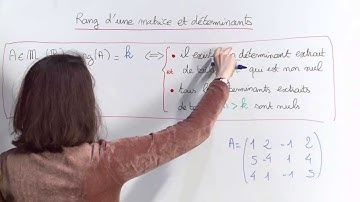 Rang d'une matrice et déterminants
A ∈ M (R) rang(A) = k ⟺ • il exis un déterminant extrait
et de qui est non nul
• tous déterminants extraits
de > k sont nuls
A = ( 1 2 -1 2
5 -4 1 4
4 1 -1 5 )